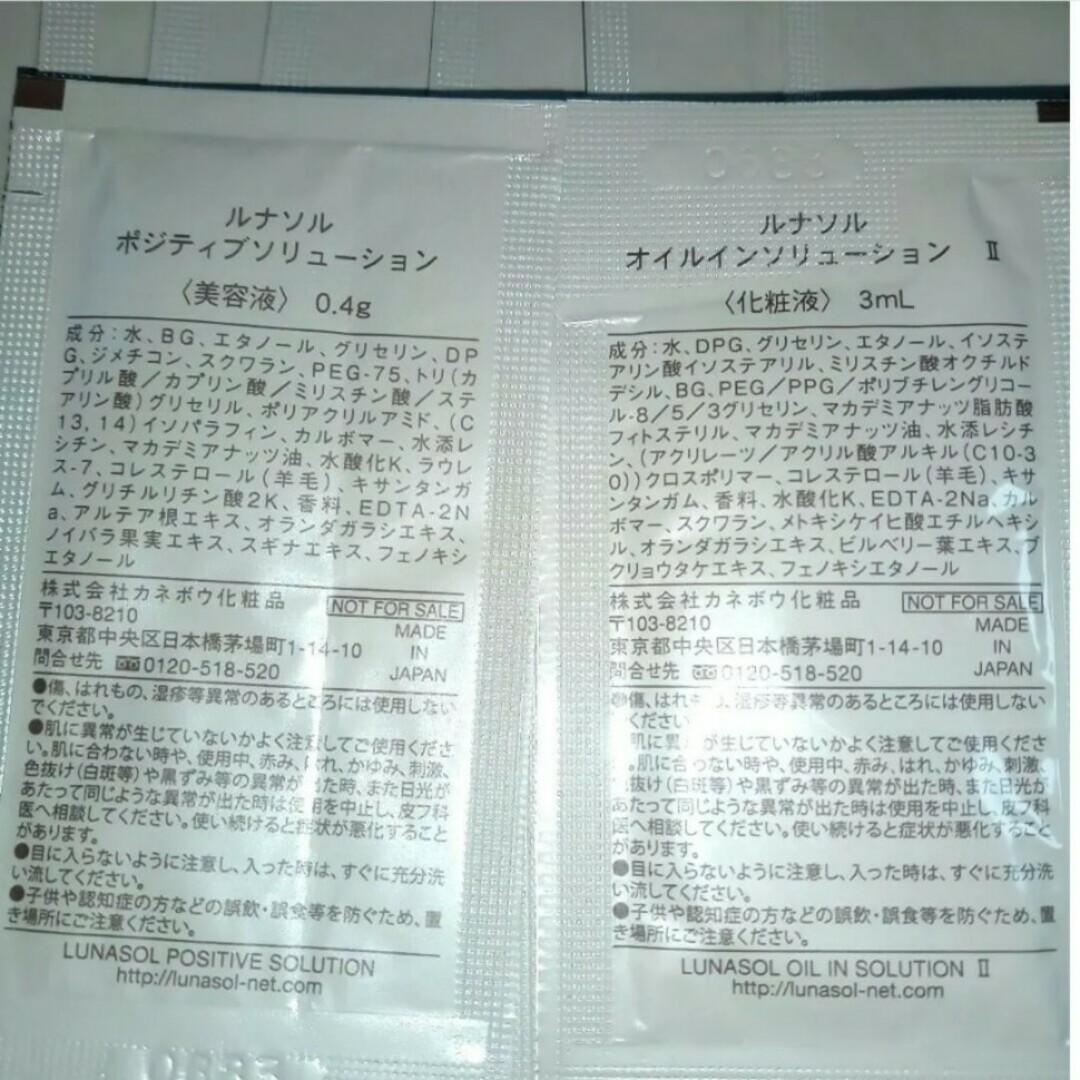 ルナソル
ポジティブソリューション
〈美容液〉 0.4g
成分:水、BG、エタノール、グリセリン、DP
G、ジメチコン、スクワラン、PEG-75、トリ(カ
プリル酸/カプリン酸/ミリスチン酸/ステ
アリン酸)グリセリル、ポリアクリルアミド、(C
13,14)イソパラフィン、カルボマー、水添レ
シチン、マカデミアナッツ油、水酸化K、ラウレ
ス-7、コレステロール(羊毛)、キサンタンガ
ム、グリチルリチン酸2K、香料、EDTA-2N
a、アルテア根エキス、オランダガラシエキス、
ノイバラ果実エキス、スギナエキス、フェノキシ
エタノール
株式会社カネボウ化粧品 NOT FOR SALE
〒103-8210 MADE
東京都中央区日本橋茅場町1-14-10 IN
問合せ先 0120-518-520 JAPAN
●傷、はれもの、湿疹等異常のあるところには使用しない
でください。
●肌に異常が生じていないかよく注意してご使用くださ
い。肌に合わない時や、使用中、赤み、はれ、かゆみ、刺激、
色抜け(白斑等)や黒ずみ等の異常が出た時、また日光が
あたって同じような異常が出た時は使用を中止し、皮フ科
医へ相談してください。使い続けると症状が悪化すること
があります。
●目に入らないように注意し、入った時は、すぐに充分洗
い流してください。
●子供や認知症の方などの誤飲・誤食等を防ぐため、置
き場所にご注意ください。
LUNASOL POSITIVE SOLUTION
http://lunasol-net.com
ルナソル
オイルインソリューション Ⅱ
〈化粧液〉 3mL
成分:水、DPG、グリセリン、エタノール、イソステ
アリン酸イソステアリル、ミリスチン酸オクチルド
デシル、BG、PEG/PPG/ポリブチレングリコー
ル-8/5/3グリセリン、マカデミアナッツ脂肪酸
フィトステリル、マカデミアナッツ油、水添レシチ
ン、(アクリレーツ/アクリル酸アルキル(C10-3
0))クロスポリマー、コレステロール(羊毛)、キサ
ンタンガム、香料、水酸化K、EDTA-2Na、カル
ボマー、スクワラン、メトキシケイヒ酸エチルヘキシ
ル、オランダガラシエキス、ビルベリー葉エキス、ブ
クリョウタケエキス、フェノキシエタノール
株式会社カネボウ化粧品 NOT FOR SALE
〒103-8210 MADE
東京都中央区日本橋茅場町1-14-10 IN
問合せ先 0120-518-520 JAPAN
●傷、はれもの、湿疹等異常のあるところには使用しない
ください
肌に異 が生じていないかよく注意してご使用くださ
。肌に合わない時や、使用中、赤み、はれ、かゆみ、刺激、
色抜け(白斑等)や黒ずみ等の異常が出た時、また日光が
あたって同じような異常が出た時は使用を中止し、皮フ科
医へ相談してください。使い続けると症状が悪化すること
があります。
●目に入らないように注意し、入った時は、すぐに充分洗
い流してください。
●子供や認知症の方などの誤飲・誤食等を防ぐため、置
き場所にご注意ください。
LUNASOL OIL IN SOLUTION Ⅱ
http://lunasol-net.com